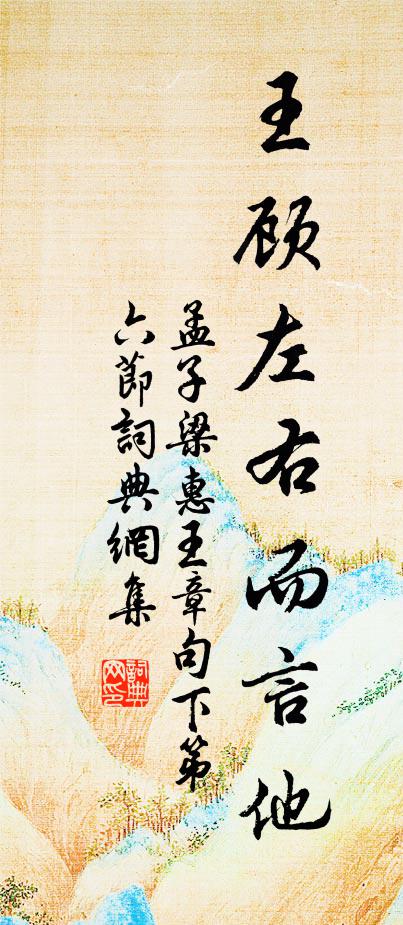 王顾左右而言他
孟子梁惠王章句下第
六節詞典網集
詞典
网印